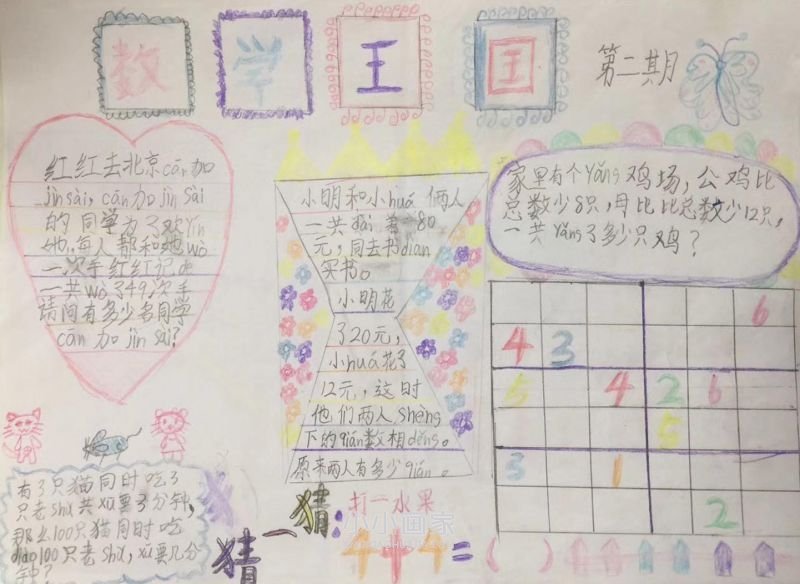 数学王国
第二期月
红红去北京cān加
jìn sài, cān加jìn sài
的同学为了欢yín
她,每人都和她wò
一次手红红记de
一共wò了49次手
请问有多少名同学
cān加jìn sài?
小明和小huá俩人
一共dài着80
元,同去书diàn
买书。
小明花
了20元,
小huá花了
12元,这时
他们两人shèng
下的qián数相děng。
原来两人有多少qián。
家里有个Yǎng鸡场,公鸡比
总数少8只,母比比总数少12只,
一共Yǎng了多少只鸡?
6
4 3
5 4 2 6
5
3 1
2
有3只猫同时吃3
只老shǔ共xū要3分钟,
那么100只猫同时吃
diào100只老shǔ,xū要几分
钟?
猜一猜:
打一水果
4+4=( )
小小画家